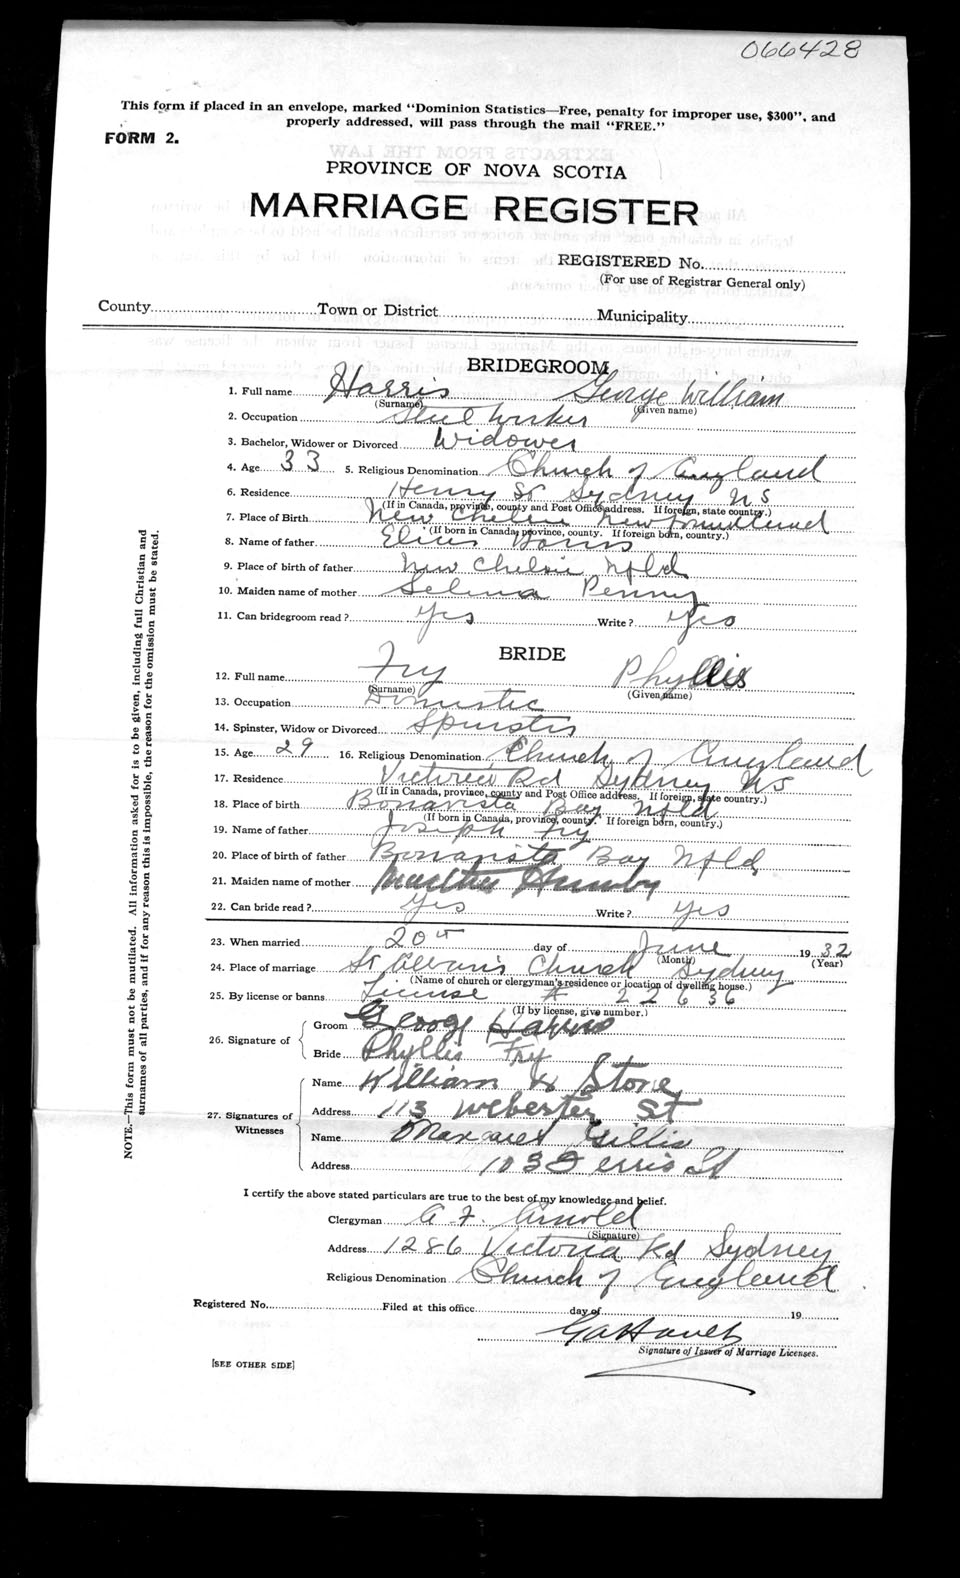 066428
This form if placed in an envelope, marked "Dominion Statistics—Free, penalty for improper use, $300", and
properly addressed, will pass through the mail "FREE."
FORM 2.
PROVINCE OF NOVA SCOTIA
MARRIAGE REGISTER
REGISTERED No.
(For use of Registrar General only)
County Town or District Municipality
BRIDEGROOM
1. Full name Harris George William
(Surname) (Given name)
2. Occupation Steel Worker
3. Bachelor, Widower or Divorced Widower
4. Age 33 5. Religious Denomination Church of England
6. Residence Henry St Sydney NS
(If in Canada, province, county and Post Office address. If foreign, state country.)
7. Place of Birth New Chelsea Newfoundland
(If born in Canada, province, county. If foreign born, country.)
8. Name of father Elias Harris
9. Place of birth of father New Chelsie Nfld
10. Maiden name of mother Selina Penny
11. Can bridegroom read? Yes Write? Yes
BRIDE
12. Full name Fry Phyllis
(Surname) (Given name)
13. Occupation Domestic
14. Spinster, Widow or Divorced Spinster
15. Age 29 16. Religious Denomination Church of England
17. Residence Victoria Rd Sydney NS
(If in Canada, province, county and Post Office address. If foreign, state country.)
18. Place of birth Bonavista Bay Nfld
(If born in Canada, province, county. If foreign born, country.)
19. Name of father Joseph Fry
20. Place of birth of father Bonavista Bay Nfld
21. Maiden name of mother
22. Can bride read? Yes Write? yes
23. When married 20th day of June 1932
(Month) (Year)
24. Place of marriage St Alban's Church Sydney
(Name of church or clergyman's residence or location of dwelling house.)
25. By license or banns License # 22636
(If by license, give number.)
26. Signature of Groom George Harris
Bride Phyllis Fry
27. Signatures of Witnesses
Name William H Stone
Address 113 Webester St
Name Margaret Gillis
Address 103 Ferris St
I certify the above stated particulars are true to the best of my knowledge and belief.
Clergyman A. F. Arnold
(Signature)
Address 1286 Victoria Rd Sydney
Religious Denomination Church of England
Registered No. Filed at this office day of 19
Signature of Issuer of Marriage Licenses.
[SEE OTHER SIDE]
NOTE.—This form must not be mutilated. All information asked for is to be given, including full Christian and
surnames of all parties, and if for any reason this is impossible, the reason for the omission must be stated.